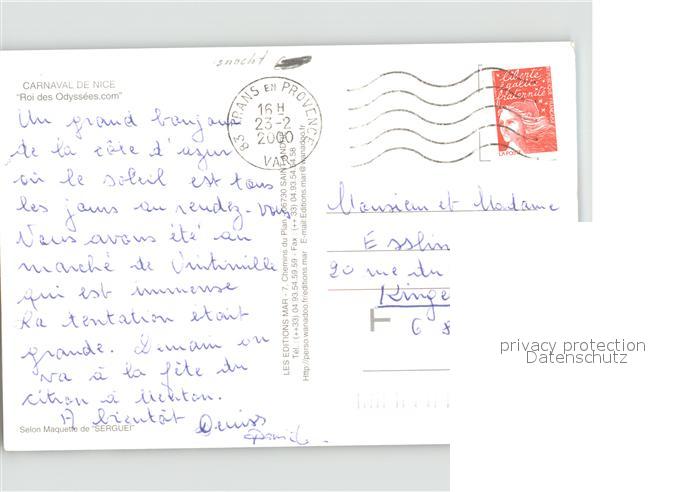 snacht
CARNAVAL DE NICE
"Roi des Odyssées.com"
Un grand bonjour
de la côte d'azur
où le soleil est tous
les jours au rendez-vous
Nous avons été au
marché de Vintimille
qui est immense
La tentation était
grande. Demain on
va à la fête du
citron à Menton.
A bientôt Denise
Selon Maquette de "SERGUEI"
83 TRANS EN PROVENCE
16 H
23-2
2000
VAR
LES EDITIONS MAR - 7, Chemins du Plan - 06730 SAINT ANDRE
Tél.: (++33) 04.93.54.59.69 - Fax : (++33) 04.93.54.54.56
Http://perso.wanadoo.fr/editions.mar E-mail:Editions.mar@wanadoo.fr
Liberté
égalité
fraternité
LA POSTE
Monsieur et Madame
Esslin
20 rue du
Kinge
F 6 8
privacy protection
Datenschutz